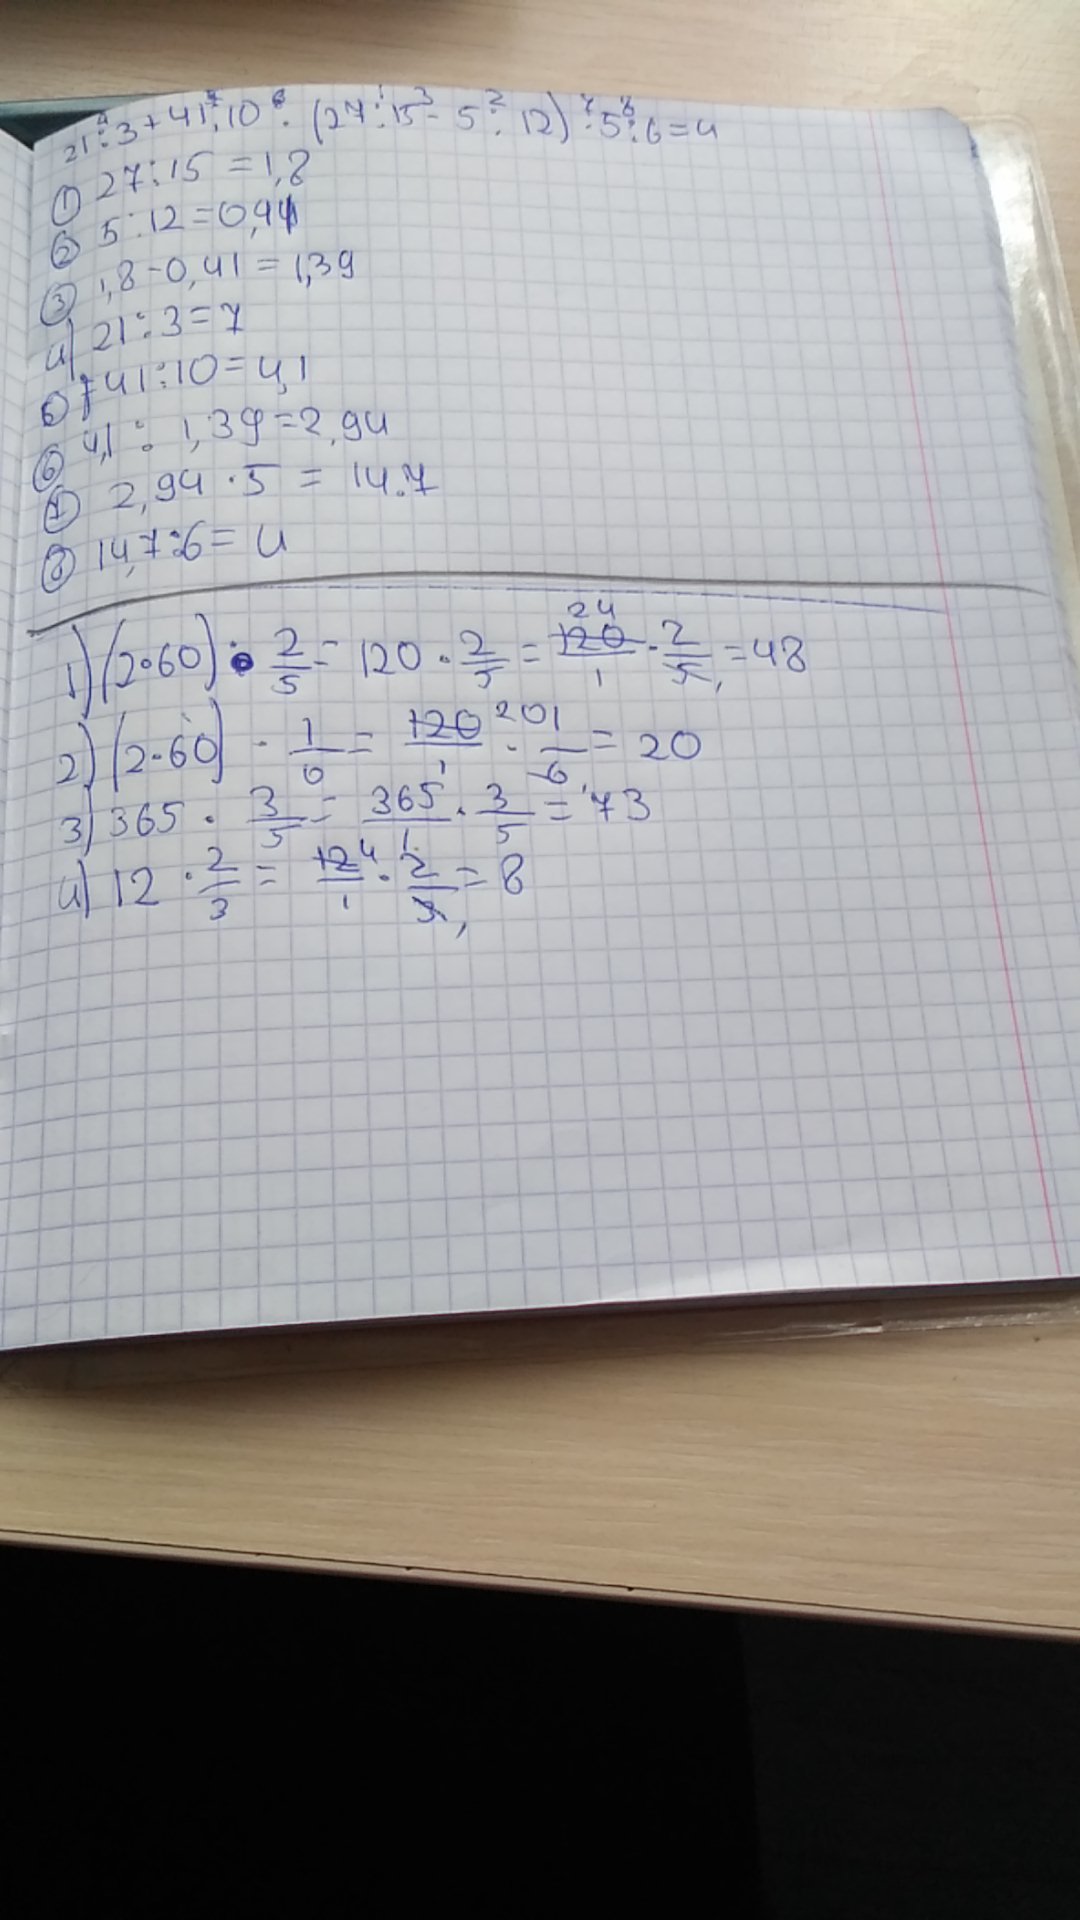 21:3+41:10:(27:15-5:12)·5:6=4
① 27:15=1,8
② 5:12=0,41
③ 1,8-0,41=1,39
4) 21:3=7
⑤ 41:10=4,1
⑥ 4,1:1,39=2,94
⑦ 2,94·5=14.7
⑧ 14,7:6=4
1) (2·60)·2/5=120·2/5=120/1·2/5=48
2) (2·60)·1/6=120/1·1/6=20
3) 365·3/5=365/1·3/5=73
4) 12·2/3=12/1·2/3=8